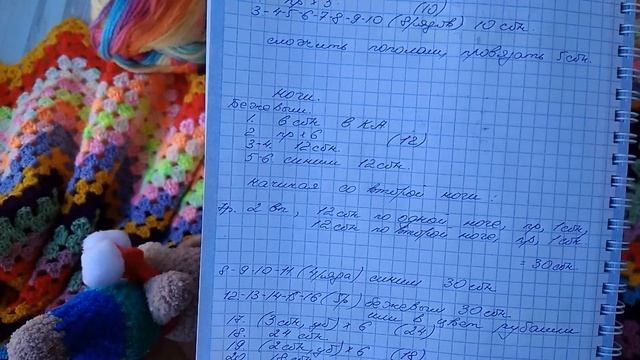 пр х 5 (10)
3-4-5-6-7-8-9-10 (8 рядов) 10 сбн.
сложить пополам, провязать 5 сбн.
ноги.
Бежевым.
1. 6 сбн в КА
2. пр х 6 (12)
3-4. 12 сбн.
5-6 синим 12 сбн.
начиная со второй ноги:
7р. 2 вп, 12 сбн по одной ноге, пр, 1 сбн,
12 сбн по второй ноге, пр, 1 сбн
= 30 сбн.
8-9-10-11 (4 ряда) синим 30 сбн
12-13-14-15-16 (5р) бежевым 30 сбн
или в цвет рубашки
17. (3 сбн, уб) х 6 (24)
18. 24 сбн.
19. (2 сбн, уб) х 6 (18)
20. 18 сбн